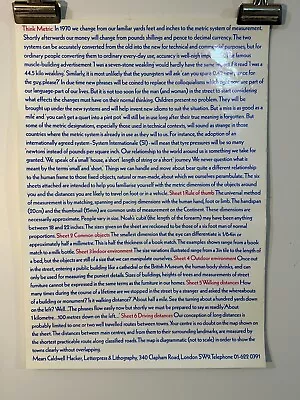 Think Metric In 1970 we change from our familiar yards feet and inches to the metric system of measurement.
Shortly afterwards our money will change from pounds shillings and pence to decimal currency. The two
systems can be accurately converted from the old into the new for technical and commercial purposes, but for
ordinary people converting them to ordinary every-day use, accuracy is well-nigh impossible. A famous
muscle-building advertisement I was a seven-stone weakling would hardly have the same impact if it read I was a
44.5 kilo weakling. Similarly, it is most unlikely that the youngsters will ask can you spare 0.42 new pence for
the guy, please? In due time new phrases will be coined to replace the colloquialisms which right now are part of
our language-part of our lives. But it is not too soon for the man (and woman) in the street to start considering
what effects the changes must have on their normal thinking. Children present no problem. They will be
brought up under the new systems and will help invent new idioms to suit the situation. But a miss is as good as a
mile and you can't get a quart into a pint pot will still be in use long after their true meaning is forgotten. But
some of the metric designations, especially those used in technical contexts, will sound as strange in those
countries where the metric system is already in use as they will to us. For instance, the adoption of an
internationally agreed system-System Internationale (SI)-will mean that tyre pressures will be so many
newtons instead of pounds per square inch. Our relationship to the world around us is something we take for
granted. We speak of a small house, a short length of string or a short journey. We never question what is
meant by the terms small and short. Things we can handle and move about bear quite a different relationship
to the human frame to those fixed objects, natural or man-made, about which we ourselves perambulate. The six
sheets attached are intended to help you familiarise yourself with the metric dimensions of the objects around
you and the distances you are likely to travel on foot or in a vehicle. Sheet 1 Rule of thumb The universal method
of measurement is by matching, spanning and pacing dimensions with the human hand, foot or limb. The handspan
(20cm) and the thumbnail (15mm) are common units of measurement on the Continent. These dimensions are
necessarily approximate. People vary in size. Noah's cubit (the length of the forearm) may have been anything
between 18 and 22 inches. The sizes given on the sheet are reckoned to be those of a six foot man of normal
proportions. Sheet 2 Common objects The smallest dimension that the eye can differentiate is 1/64in or
approximately half a millimetre. This is half the thickness of a book match. The examples shown range from a book
match to a milk bottle. Sheet 3 Indoor environment The size variations illustrated range from a 2in tile to the length of
a bed, but the objects are still of a size that we can manipulate ourselves. Sheet 4 Outdoor environment Once out
in the street, entering a public building like a cathedral or the British Museum, the human body shrinks, and can
only be used for measuring the puniest details. Sizes of buildings, heights of trees and measurements of street
furniture cannot be expressed in the same terms as the furniture in our homes. Sheet 5 Walking distances How
many times during the course of a lifetime are we stopped in the street by a stranger and asked the whereabouts
of a building or monument? Is it walking distance? About half a mile. See the turning about a hundred yards down
on the left? Well...The phrases flow easily now but shortly we must be prepared to say as readily About
1 kilometre...100 metres down on the left... Sheet 6 Driving distances Our conception of long distances is
probably limited to one or two well travelled routes between towns. Your centre is no doubt the map shown on
the sheet. The distances between main centres, and from them to their surrounding landmarks, are measured by
the shortest practicable route along classified roads. The map is diagrammatic (not to scale) in order to show the
towns clearly without overlapping.
Mears Caldwell Hacker, Letterpress & Lithography, 340 Clapham Road, London SW9. Telephone 01-622 0391